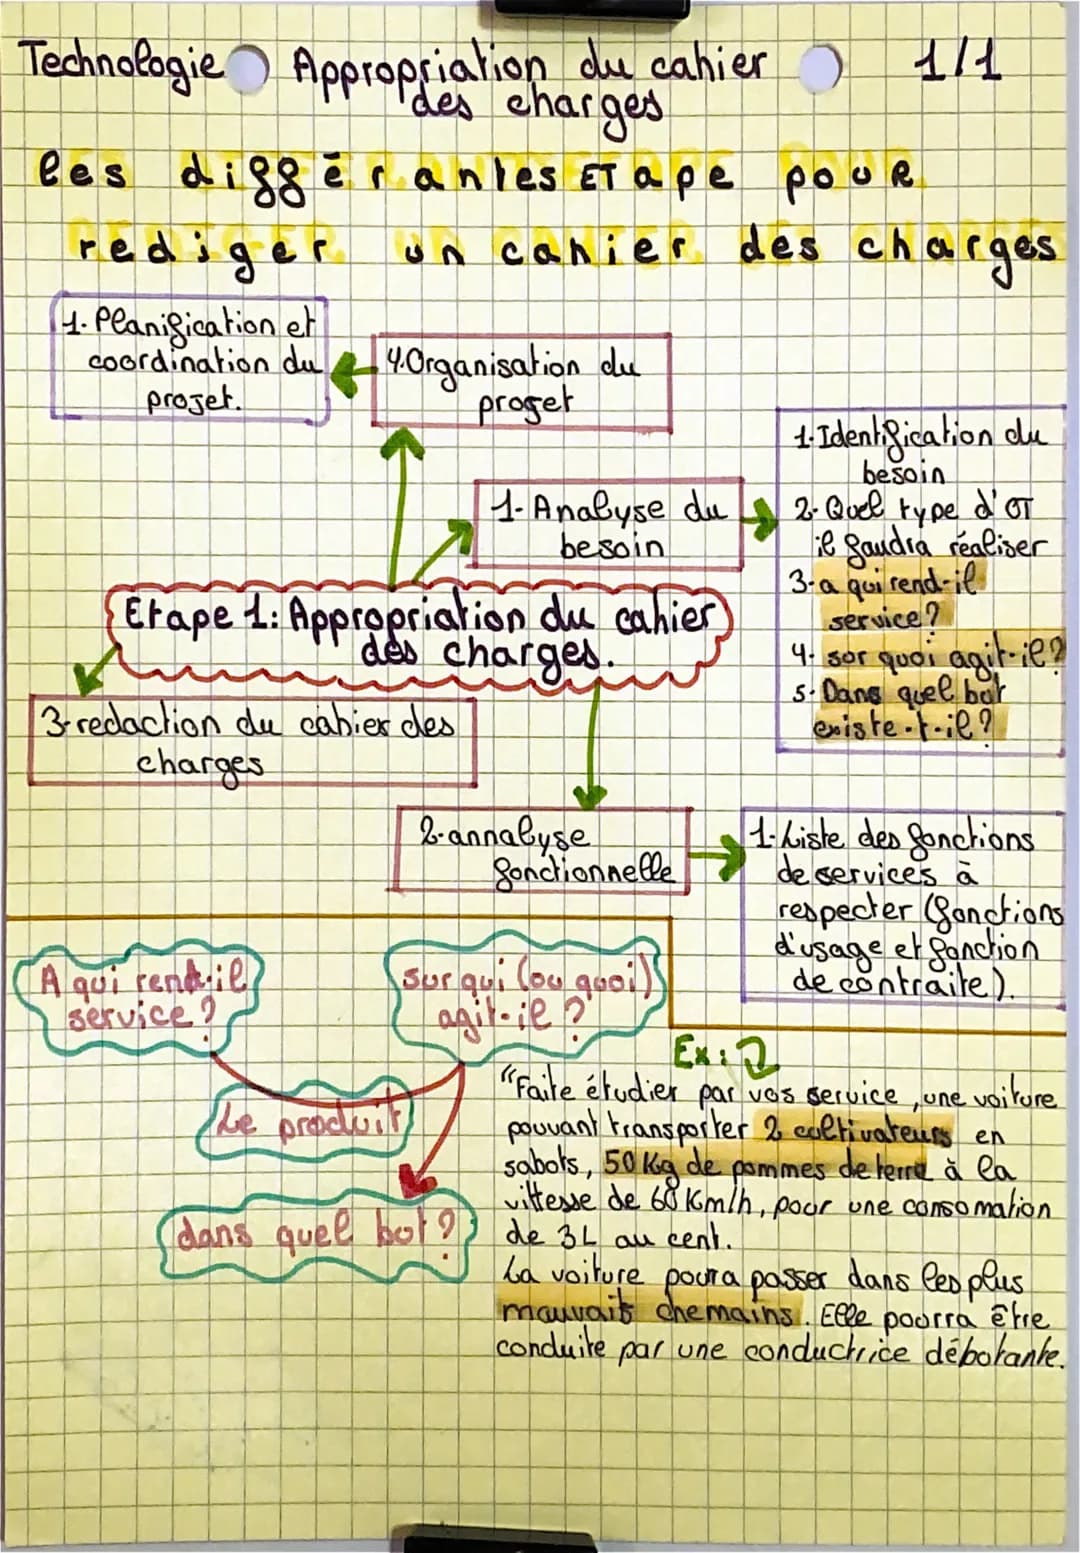 Technologie Appropriation du cahier 1/1
des charges
les différantes ETape pour
rediger un cahier des charges
1. Planification et
coordination du
projet.
4. Organisation du
projet
1- Analyse du
besoin
1- Identification du
besoin
2- Quel type d'OT
il faudra réaliser
3- a qui rend-il
service?
4. sor quoi agit-il?
5- Dans quel but
existe-t-il?
Etape 1: Appropriation du cahier
des charges.
3- redaction du cahier des
charges
2- annalyse
fonctionnelle
1- Liste des fonctions
de services à
respecter (fonctions
d'usage et fonction
de contraite).
A qui rend-il
service?
sur qui (ou quoi)
agit-il?
Le produit
dans quel but?
Ex:
"Faite étudier par vos service, une voiture
pouvant transporter 2 cultivateurs en
sabots, 50 Kg de pommes de terre à la
vittesse de 60 Km/h, pour une consomation
de 3L au cent.
La voiture poura passer dans les plus
mauvait chemains. Elle pourra être
conduite par une conductrice débutante.